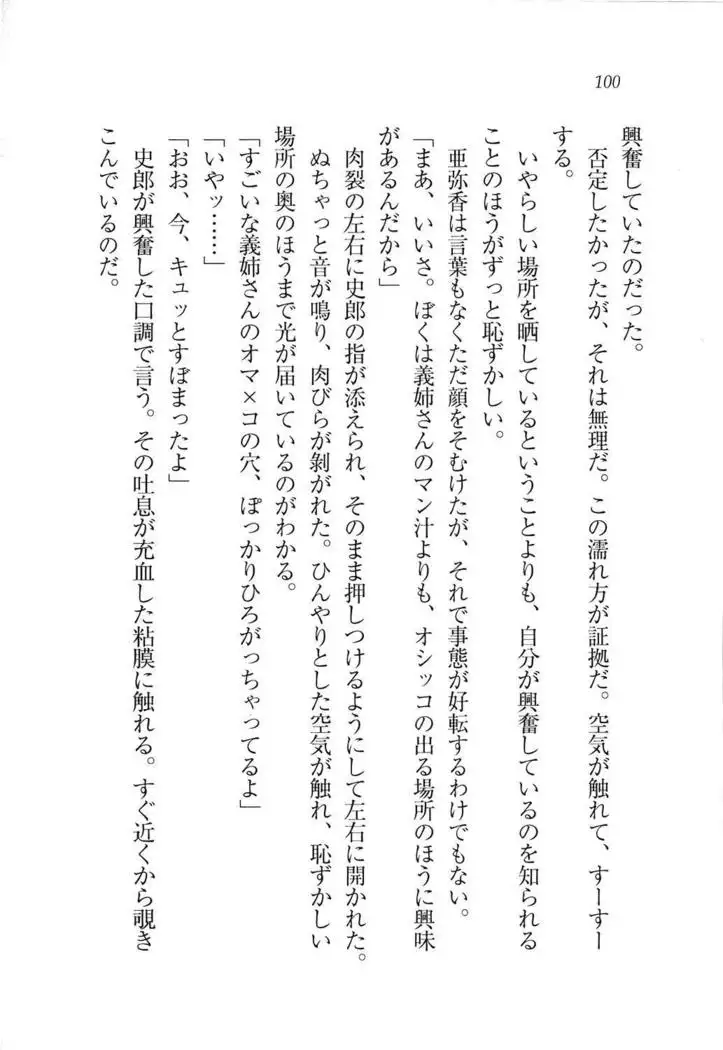 100
興奮していたのだった。
否定したかったが、それは無理だ。この濡れ方が証拠だ。空気が触れて、すーすー
する。
いやらしい場所を晒しているということよりも、自分が興奮しているのを知られる
ことのほうがずっと恥ずかしい。
亜弥香は言葉もなくただ顔をそむけたが、それで事態が好転するわけでもない。
「まあ、いいさ。ぼくは義姉さんのマン汁よりも、オシッコの出る場所のほうに興味
があるんだから」
肉裂の左右に史郎の指が添えられ、そのまま押しつけるようにして左右に開かれた。
ぬちゃっと音が鳴り、肉びらが剝がれた。ひんやりとした空気が触れ、恥ずかしい
場所の奥のほうまで光が届いているのがわかる。
「すごいな義姉さんのオマ×コの穴、ぽっかりひろがっちゃってるよ」
「いやッ……」
「おお、今、キュッとすぼまったよ」
史郎が興奮した口調で言う。その吐息が充血した粘膜に触れる。すぐ近くから覗き
こんでいるのだ。